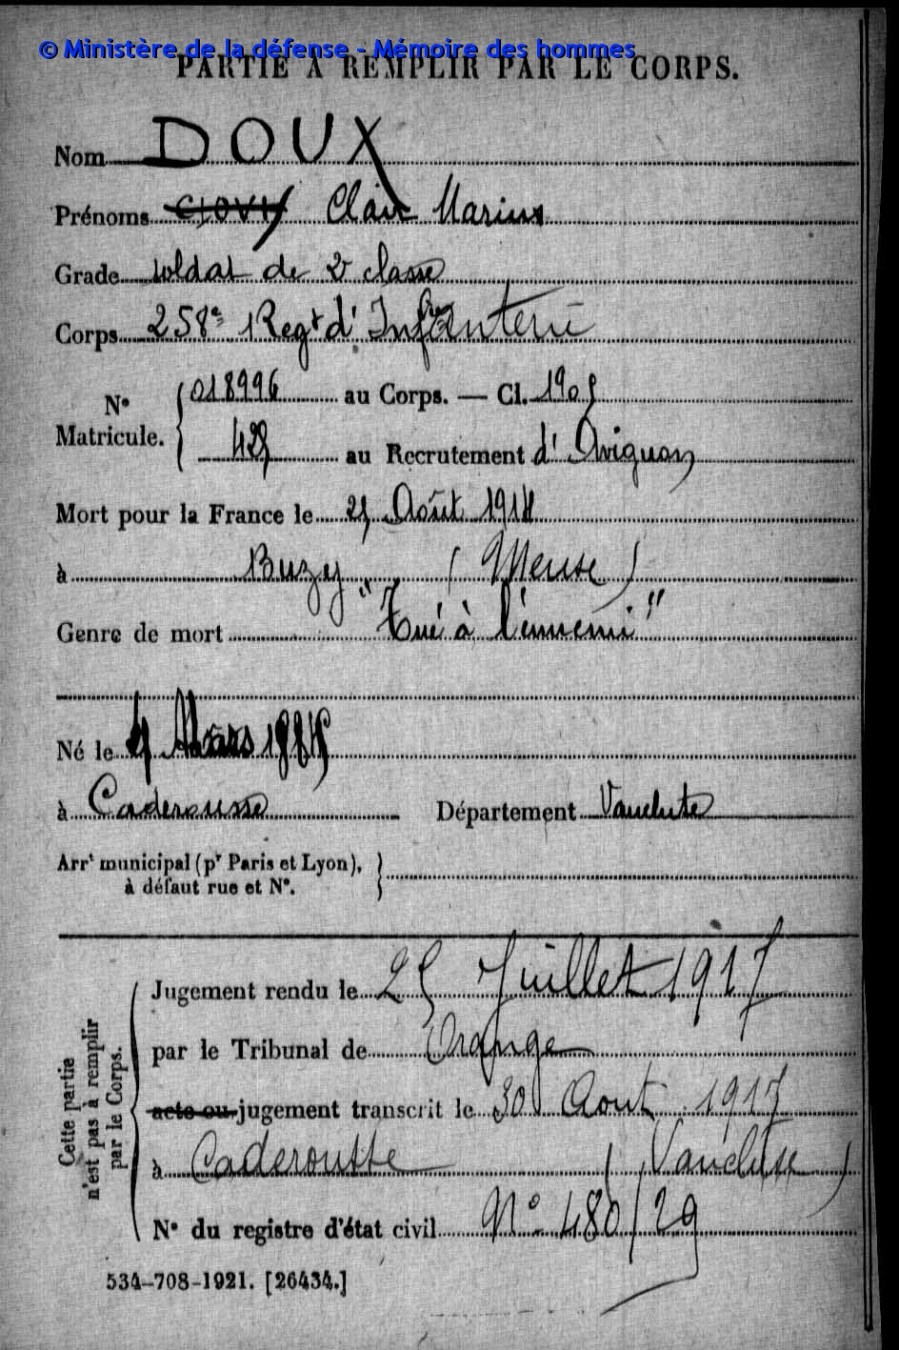 © Ministère de la défense - Mémoire des hommes
PARTIE À REMPLIR PAR LE CORPS.
Nom DOUX
Prénoms Clovis Clair Marius
Grade soldat de 2e classe
Corps 258e Regt d'Infanterie
N° Matricule. 018996 au Corps. — Cl. 1905
au Recrutement d'Avignon
Mort pour la France le 25 Août 1914
à Buzy (Meuse)
Genre de mort "Tué à l'ennemi"
Né le 4 Mars 1885
à Caderousse Département Vaucluse
Arrt municipal (pr Paris et Lyon), à défaut rue et N°.
Cette partie n'est pas à remplir par le Corps.
Jugement rendu le 25 Juillet 1917
par le Tribunal de Orange
acte ou jugement transcrit le 30 Aout 1917
à Caderousse (Vaucluse)
N° du registre d'état civil N° 480/29
534-708-1921. [26434.]